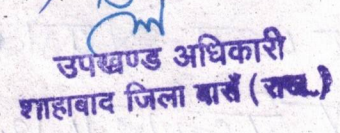 उपखण्ड अधिकारी
शाहाबाद जिला बाराँ ( राज. )